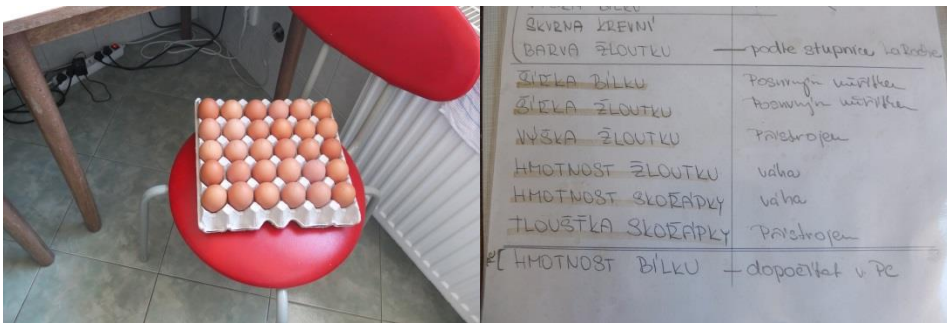 SKVRNA KREVNÍ
BARVA ŽLOUTKU — podle stupnice La Roche
ŠÍŘKA BÍLKU posuvným měřítkem
ŠÍŘKA ŽLOUTKU posuvným měřítkem
VÝŠKA ŽLOUTKU Přístrojem
HMOTNOST ŽLOUTKU váha
HMOTNOST SKOŘÁPKY váha
TLOUŠŤKA SKOŘÁPKY Přístrojem
HMOTNOST BÍLKU – dopočítat v PC